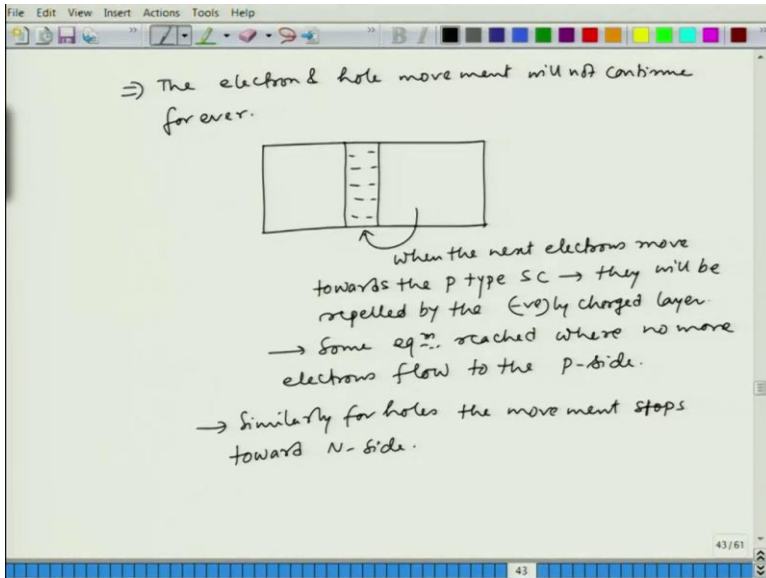 File Edit View Insert Actions Tools Help
B I
⇒) The electron & hole movement will not continue
for ever.
when the next electrons move
towards the p type SC → they will be
repelled by the (-ve)ly charged layer.
→ Some eqm. reached where no more
electrons flow to the p-side.
→ Similarly for holes the movement stops
toward N-side.
43/61
43